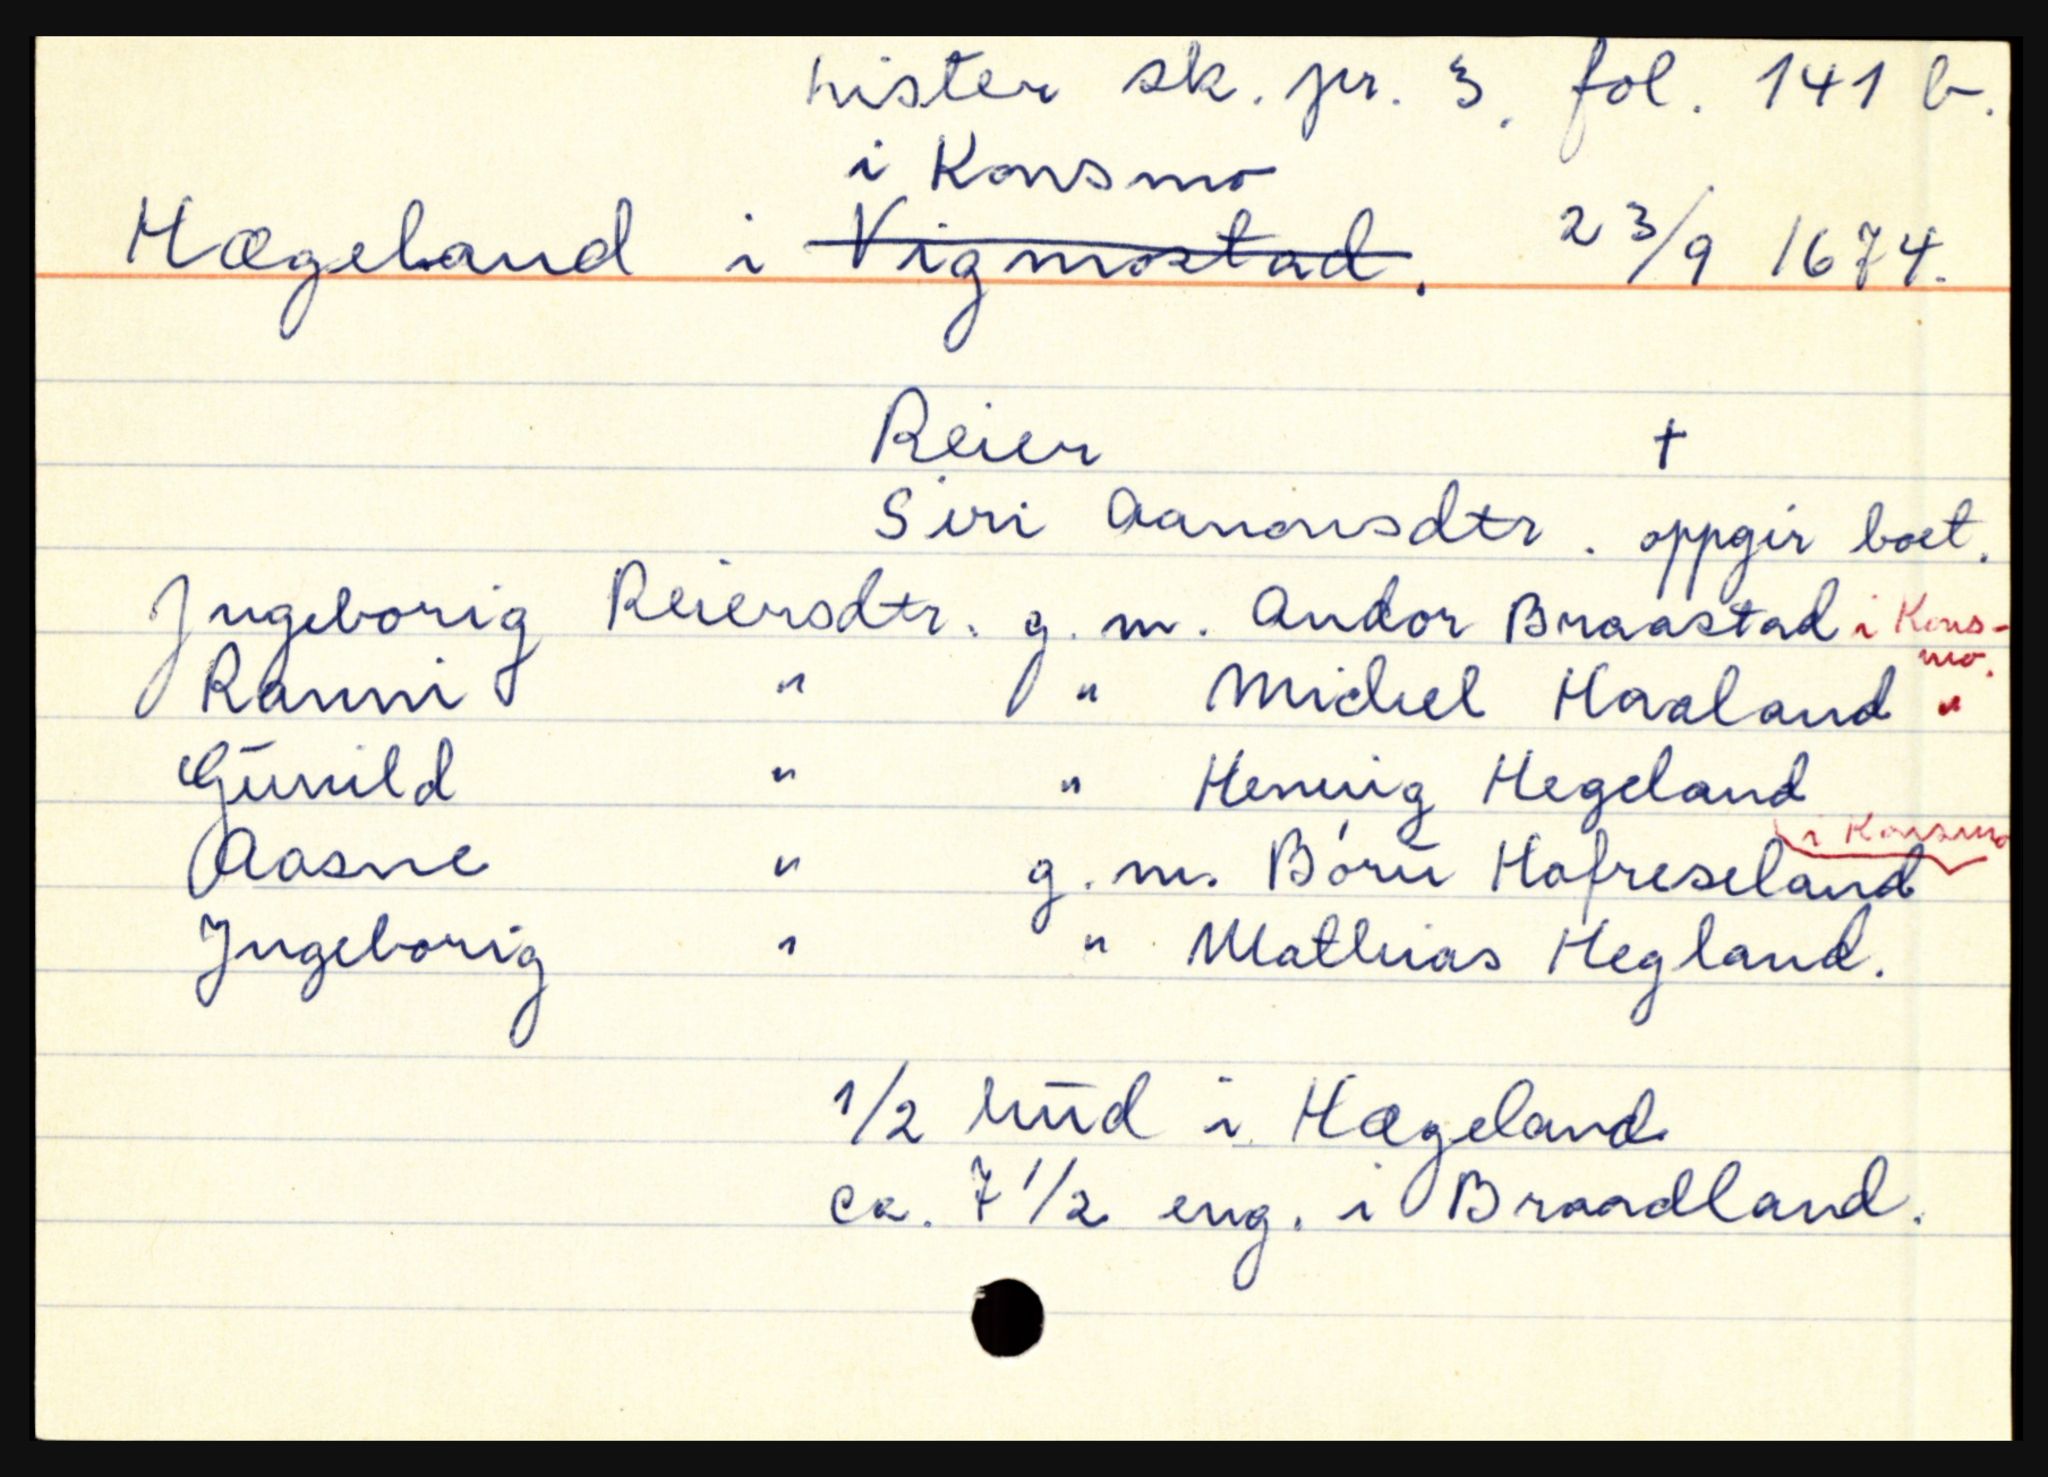 Lister sk. pr. 3. fol. 141 b.
i Konsmo
Hægeland i Vigmostad. 23/9 1674.
Reier †
Siri Aanonsdtr. oppgir boet.
Ingeborig Reiersdtr. g. m. Andor Braastad i Kons-
mo.
Ranni " " Michel Haaland "
Gūnild " " Hennig Hegeland
i Konsmo
Aasne " g. m. Børū Hafreseland
Ingeborig " " Mathias Hegland.
1/2 hūd i Hægeland
ca. 7 1/2 eng. i Braadland.